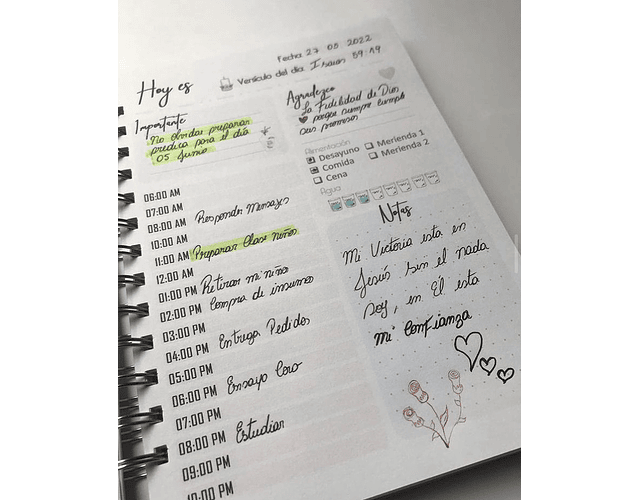 Fecha 27 05 2022
Hoy es
Versículo del día: Isaias 59:19
Importante
No olvidar preparar
predica para el día
05 Junio
Agradezco
La Fidelidad de Dios
porque siempre cumple
sus promesas
Alimentación
Desayuno Merienda 1
Comida Merienda 2
Cena
Agua
06:00 AM
07:00 AM
08:00 AM Responder Mensajes
10:00 AM
11:00 AM Preparar Clase niños
12:00 AM
01:00 PM Retirar mi niño
02:00 PM Compra de insumos
03:00 PM
04:00 PM Entrega Pedidos
05:00 PM
06:00 PM Ensayo Coro
07:00 PM
08:00 PM Estudiar
09:00 PM
10:00 PM
Notas
Mi Victoria esta en
Jesús sin el nada
soy, en El esta
mi confianza